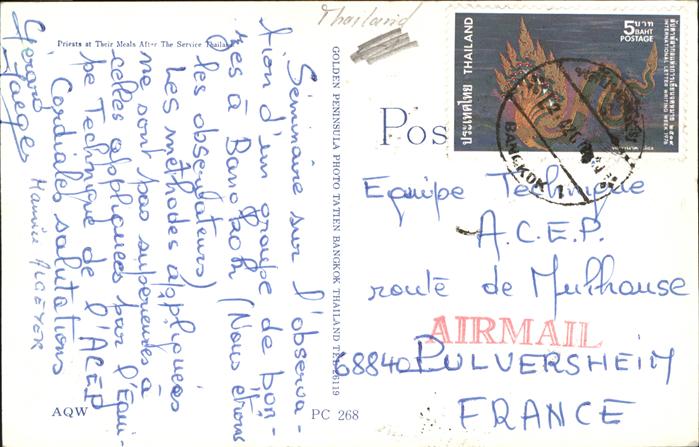 Thailand
Priests at Their Meals After The Service Thailand
Séminaire sur l'observa-
tion d'un groupe de bon-
zes à Bangkok (Nous étions
les observateurs)
Les méthodes appliquées
ne sont pas supérieures à
celles appliquées par l'Equi-
pe Technique de l'ACEP
Cordiales salutations
Gérard
Jaeger
Maurice
AQW
PC 268
GOLDEN PENINSULA PHOTO TATIEN BANGKOK THAILAND TEL. 26119
Pos
5 บาท
BAHT
POSTAGE
ประเทศไทย THAILAND
INTERNATIONAL LETTER WRITING WEEK 1978
BANGKOK 1
Equipe Technique
A.C.E.P.
route de Mulhouse
AIRMAIL
68840 PULVERSHEIM
FRANCE